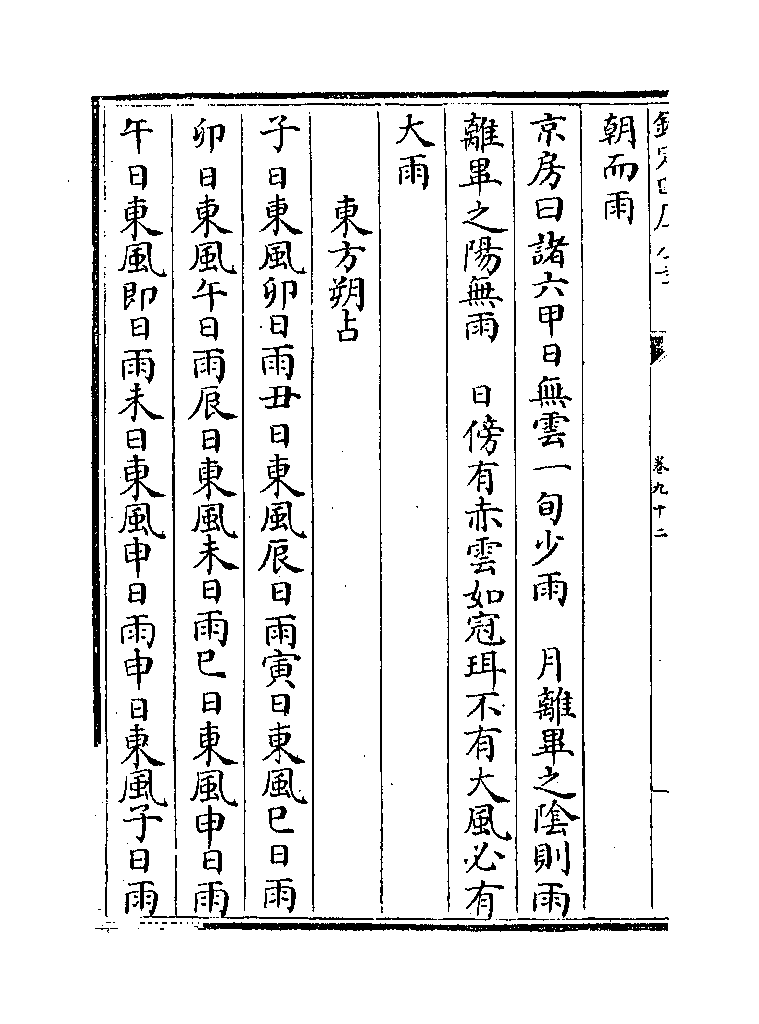 卷九十二
朝而雨
京房曰諸六甲日無雲一旬少雨　月離畢之隂則雨
離畢之陽無雨　日傍有赤雲如冠珥不有大風必有
大雨
東方朔占
子日東風卯日雨丑日東風辰日雨寅日東風巳日雨
卯日東風午日雨辰日東風未日雨巳日東風申日雨
午日東風即日雨未日東風申日雨申日東風子日雨